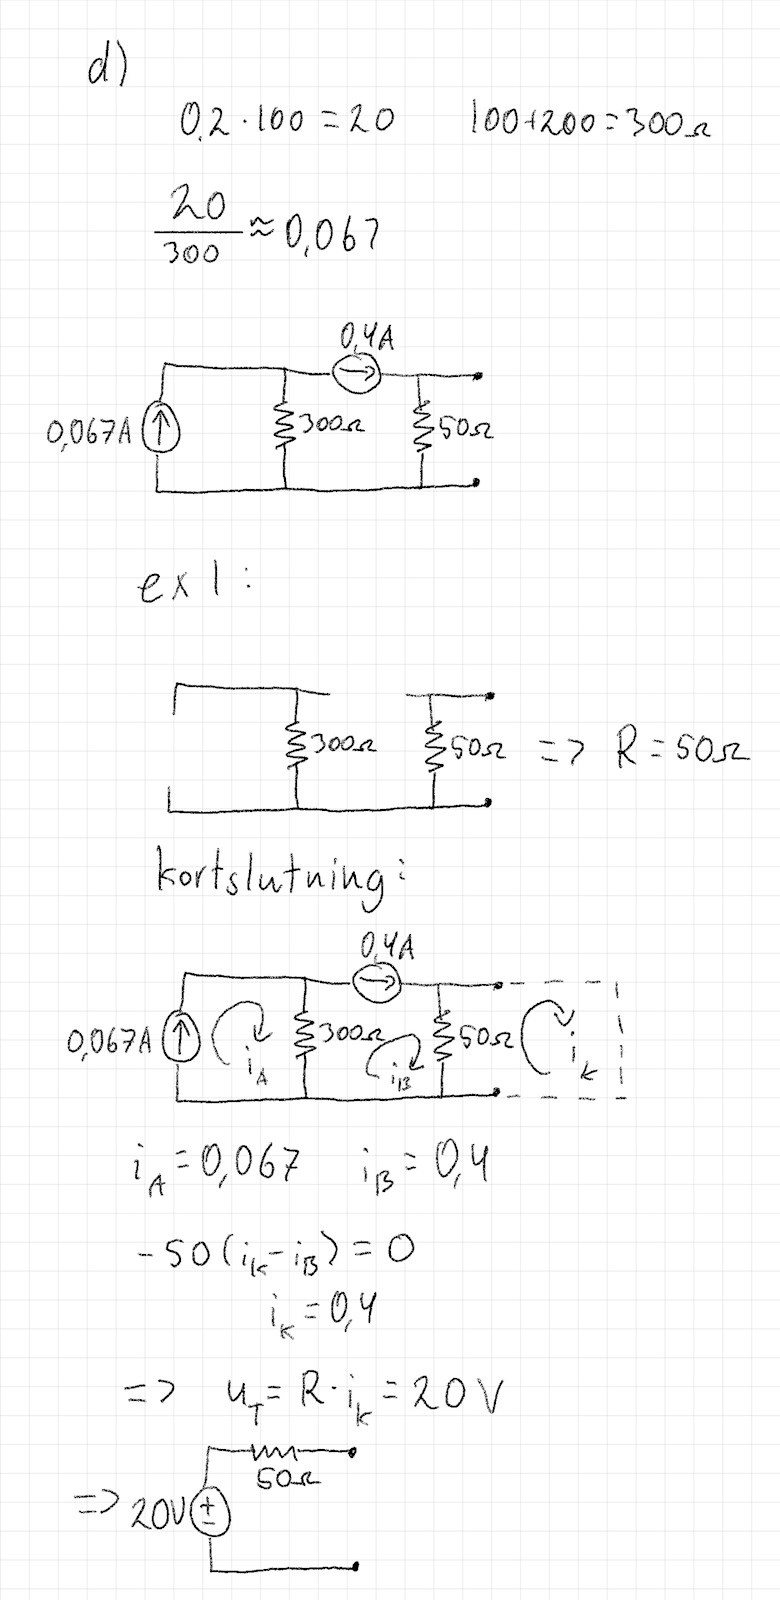 d)
0,2 · 100 = 20 100+200=300Ω
20
300
≈ 0,067
0,4A
0,067A 300Ω 50Ω
ex1:
300Ω 50Ω => R = 50Ω
kortslutning:
0,4A
0,067A i_A 300Ω i_B 50Ω i_K
i_A = 0,067 i_B = 0,4
-50(i_K - i_B) = 0
i_K = 0,4
=> u_T = R · i_K = 20 V
50Ω
=> 20V